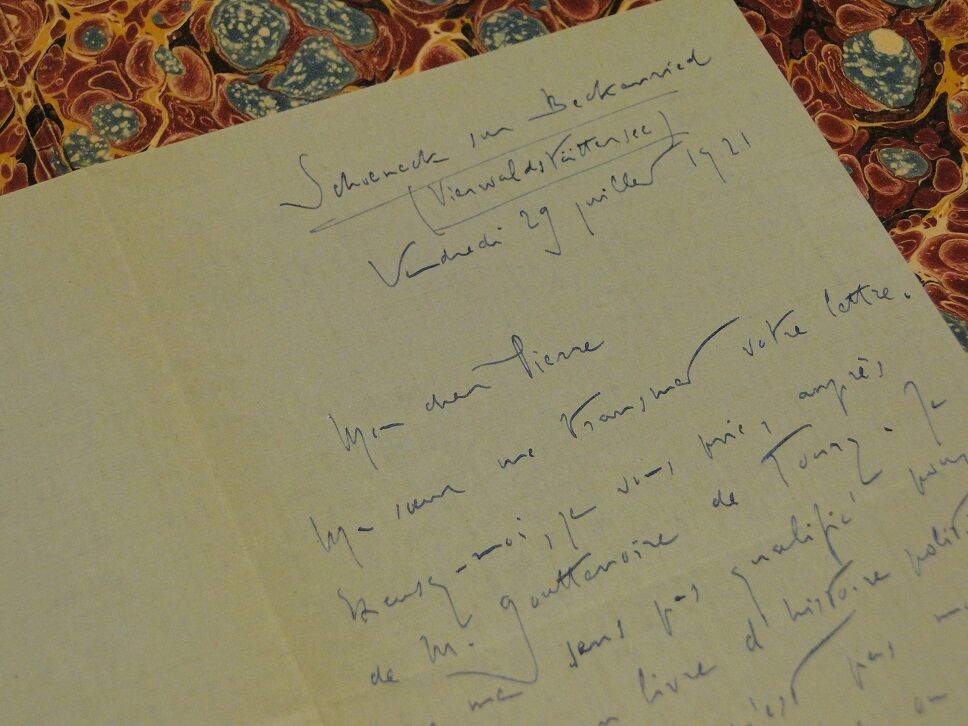 Schoeneck sur Beckenried
(Vierwaldstättersee)
Vendredi 29 juillet 1921
Mon cher Pierre
Ma sœur me transmet votre lettre.
Excusez-moi, je vous prie, auprès
de M. Gouttenoire de Toury. Je
me sens pas qualifié pour
un livre d'histoire polit
n'est pas